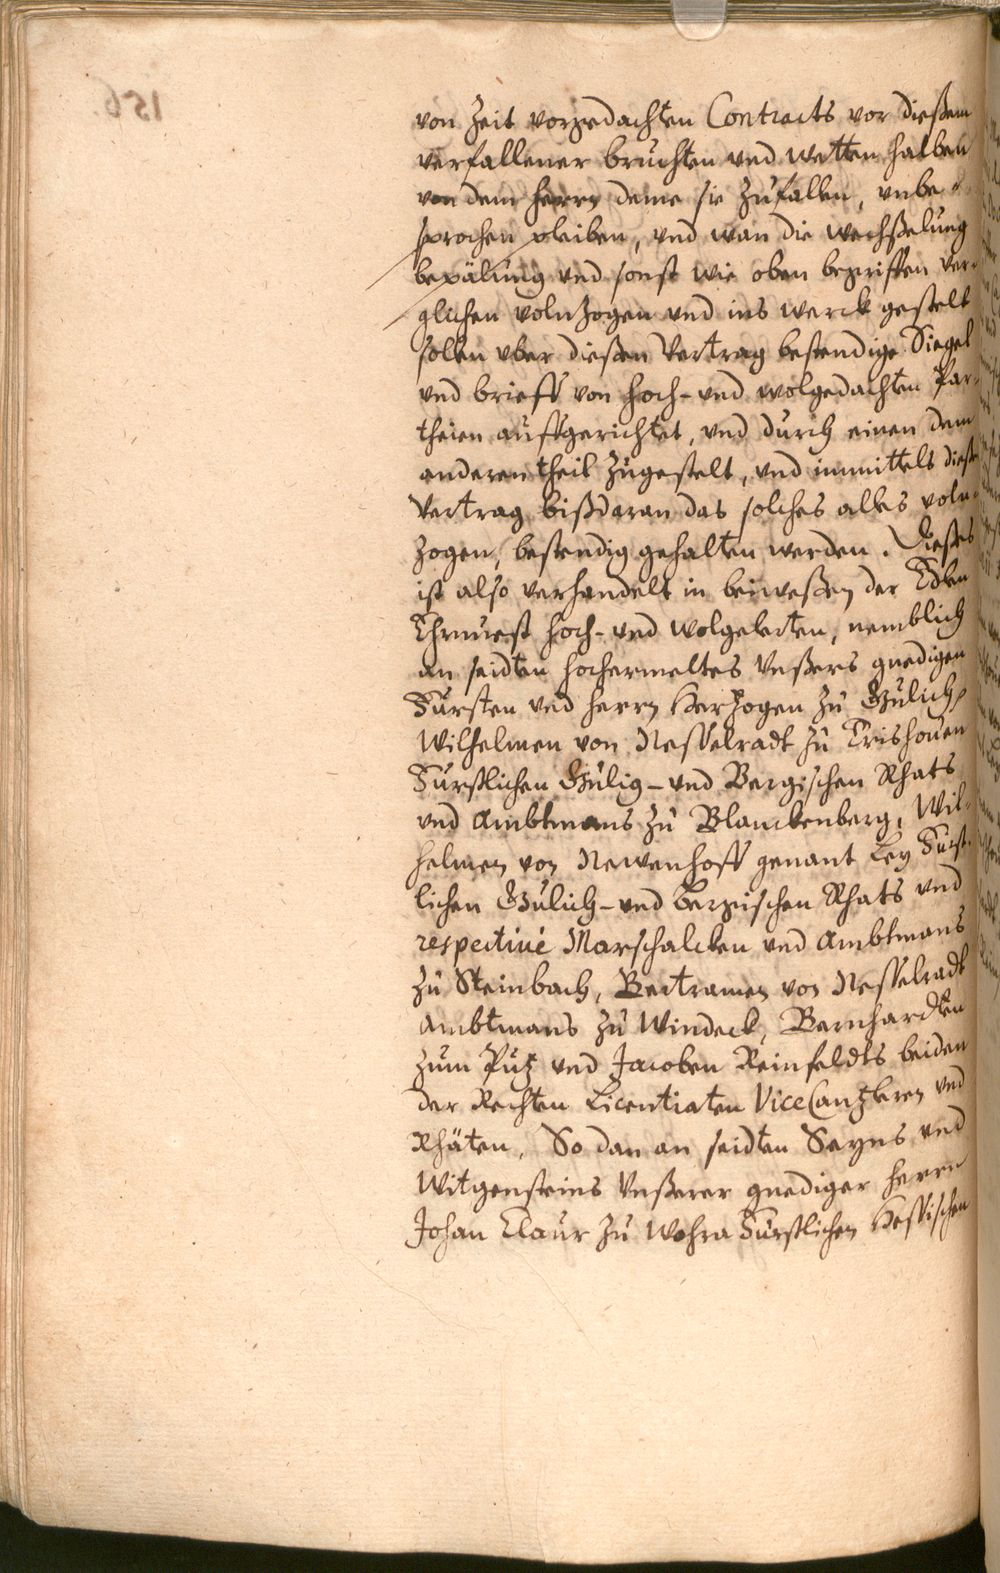 von Zeit vorgedachten Contracts vor dießem
verfallener bruchten vnd wetten halben
von dem herrn deme sie zufallen, vnbe-
sprochen pleiben, vnd wan die wechßelung
bepälung vnd sonst wie oben begriffen ver-
glichen volnzogen vnd ins werck gestelt
sollen vber dießen Vertrag bestendige Siegel
vnd brieff von hoch- vnd wolgedachten Par-
theien auffgerichtet, vnd durch einen dem
anderen theil zugestelt, vnd immittels dieße
Vertrag bißdaran das solches alles voln-
zogen, bestendig gehalten werden. Dießes
ist also verhandelt in beiweßen der Edlen
Ehrnuest hoch- vnd wolgelerten, nemblich
an seidten hochermeltes Vnßers gnedigen
Fürsten vnd herrn Herzogen zu Gülich,
Wilhelmen von Nesselradt zu Ereshouen
Fürstlichen Gülig- vnd Bergischen Rhats
vnd Ambtmans zu Blanckenberg, Wil-
helmen von Newenhoff genant Ley Fürst-
lichen Gülich- vnd bergischen Rhats vnd
respectiué Marschalcken vnd Ambtmans
zu Steinbach, Bertramen von Nesselradt
Ambtmans zu Windeck, Bernhardten
zum Pütz vnd Jacoben Reinfeldts beiden
der Rechten Licentiaten ViceCantzleren vnd
Rhäten, So dan an seidten Sayns vnd
Witgensteins Vnßerer gnediger herrn
Johan Claur zu Wohra Fürstlichen Hessischen
156.